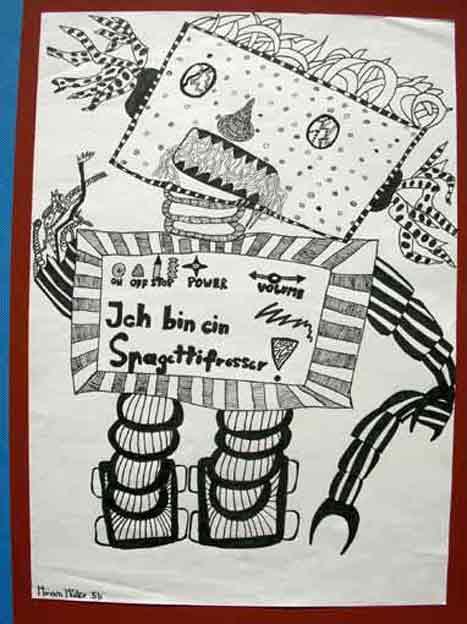 ON OFF STOP POWER VOLUME
Ich bin ein
Spagettifresser
!
Miriam Müller 5b